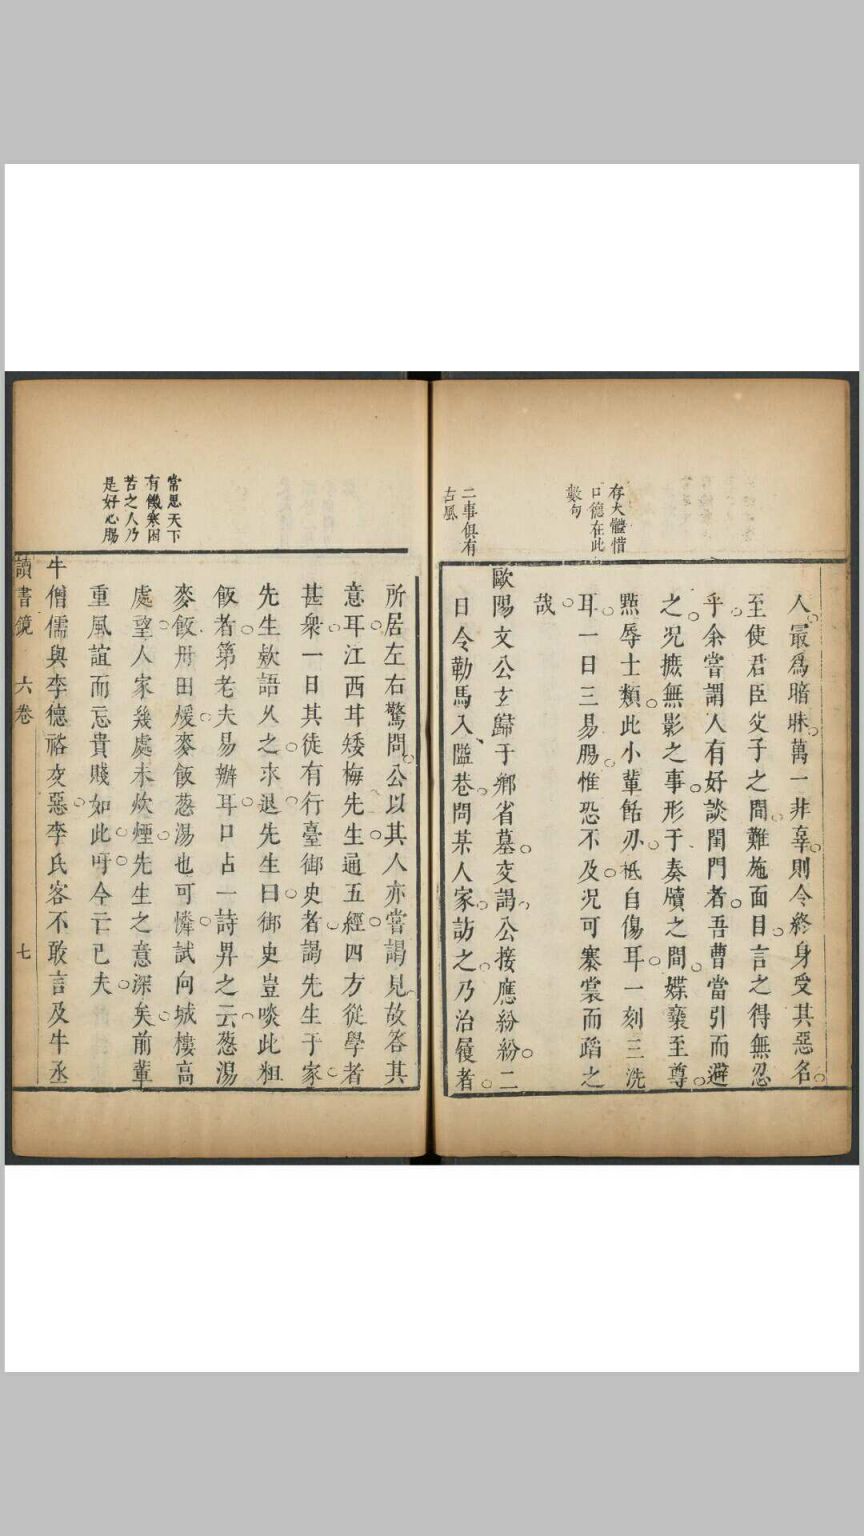 存大體惜
口德在此
數句
二事俱有
古風
人最爲暗昧萬一非辜則令終身受其惡名
至使君臣父子之間難施面目言之得無忍
乎余嘗謂人有好談閨門者吾曹當引而避
之况摭無影之事形于奏牘之間媟褻至尊
㸃辱士類此小輩餂刃祗自傷耳一刻三洗
耳一日三易腸惟恐不及况可褰裳而蹈之
哉
歐陽文公玄歸于鄉省墓交謁公接應紛紛二
日令勒馬入隘巷問某人家訪之乃治屨者
常思天下
有饑寒困
苦之人乃
是好心腸
所居左右驚問公以其人亦嘗謁見故答其
意耳江西𦓐矮梅先生通五經四方從學者
甚衆一日其徒有行臺御史者謁先生于家
先生欵語久之求退先生曰御史豈啖此粗
飯者第老夫易辦耳口占一詩昇之云葱湯
麥飯丹田煖麥飯葱湯也可憐試向城樓高
處望人家幾處未炊煙先生之意深矣前輩
重風誼而忘貴賤如此吁今亡已夫
牛僧儒與李德裕交惡李氏客不敢言及牛丞
讀書鏡 六卷 七